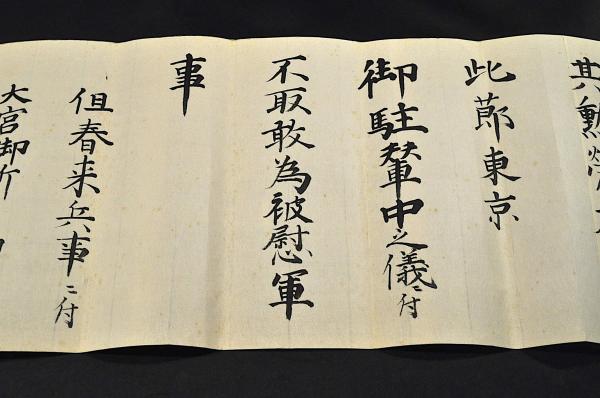 其勲労
此節東京
御駐輦中之儀ニ付
不取敢為被慰軍
事
但春来兵事ニ付
大宮御所